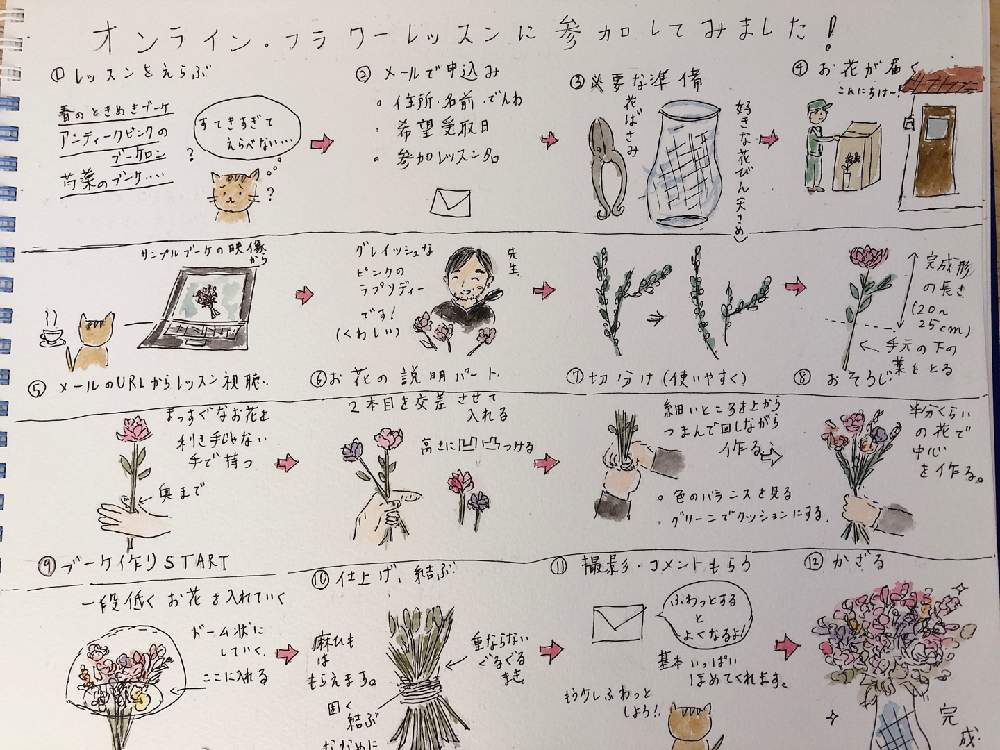 オンライン・フラワーレッスンに参加してみました!
① レッスンをえらぶ
春のときめきブーケ
アンティークピンクの
ブーケロン
芍薬のブーケ…
すてきすぎて
えらべない…
?
?
② メールで申込み
・住所・名前・でんわ
・希望受取日
・参加レッスン名
③ 必要な準備
花ばさみ
好きな花びん(大きめ)
④ お花が届く
こんにちはー!
サンプルブーケの映像
から
⑤ メールのURLからレッスン視聴.
グレイッシュな
ピンクの
ラプソディー
です!
(くわしい)
先生
⑥ お花の説明パート
⑦ 切分け(使いやすく)
完成形
の長さ
(20~
25cm)
手元の下の
葉をとる
⑧ おそうじ
まっすぐなお花を
利き手じゃない
手で持つ
奥まで
⑨ ブーケ作りSTART
2本目を交差させて
入れる
高さに凹凸つける
細いところを上から
つまんで回しながら
作る
・色のバランスを見る
・グリーンでクッションにする.
半分くらい
の花で
中心
を作る。
一段低くお花を入れていく
ドーム状に
していく.
ここに入れる
⑩ 仕上げ、結ぶ
麻ひも
は
もらえます。
固く
結ぶ
ななめに
重ならない
ぐるぐる
まき.
⑪ 撮影・コメントもらう
ふわっとする
と
よくなるよ!
基本いっぱい
ほめてくれます。
もう少しふわっと
しよう!!
⑫ かざる
完成